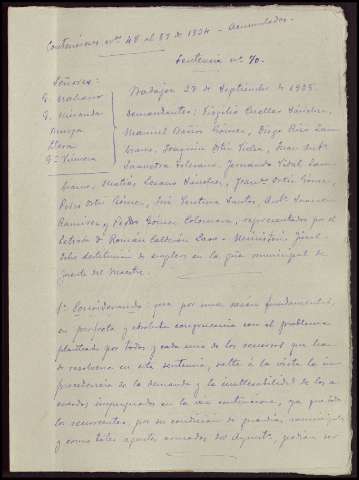 Contencioso nº 48 al 59 de 1934 - Acumulados.
Sentencia nº 70.
Señores:
Badajoz 27 de Septiembre de 1935.
Demandantes: Virgilio Cuellar Sánchez,
Manuel Baños Gómez, Diego Rico Zam
brano, Joaquín Ortiz
Saavedra Toscano, Fernando Vidal Zam
brano, Matías Lozano Sánchez, Juan Ortiz Gómez,
Pedro Ortiz Gómez, José Ventura Santos, Antº
Ramírez y Pedro Gómez, representados por el
Letrado D. Román Calderón - Ministerio fiscal -
sobre destitución de empleos en la guardia municipal de
Fuente del Maestre.
1º Considerando: que por una razón fundamental,
en perfecta y absoluta congruencia con el problema
planteado por todos y cada uno de los recursos que han
de resolverse en esta sentencia, salta a la vista la im
procedencia de la demanda y la inatacabilidad de los a
cuerdos impugnados en la vía contenciosa, ya que todos
los recurrentes, por su condición de guardias municipales
y como tales agentes armados del Ayuntº, podían ser